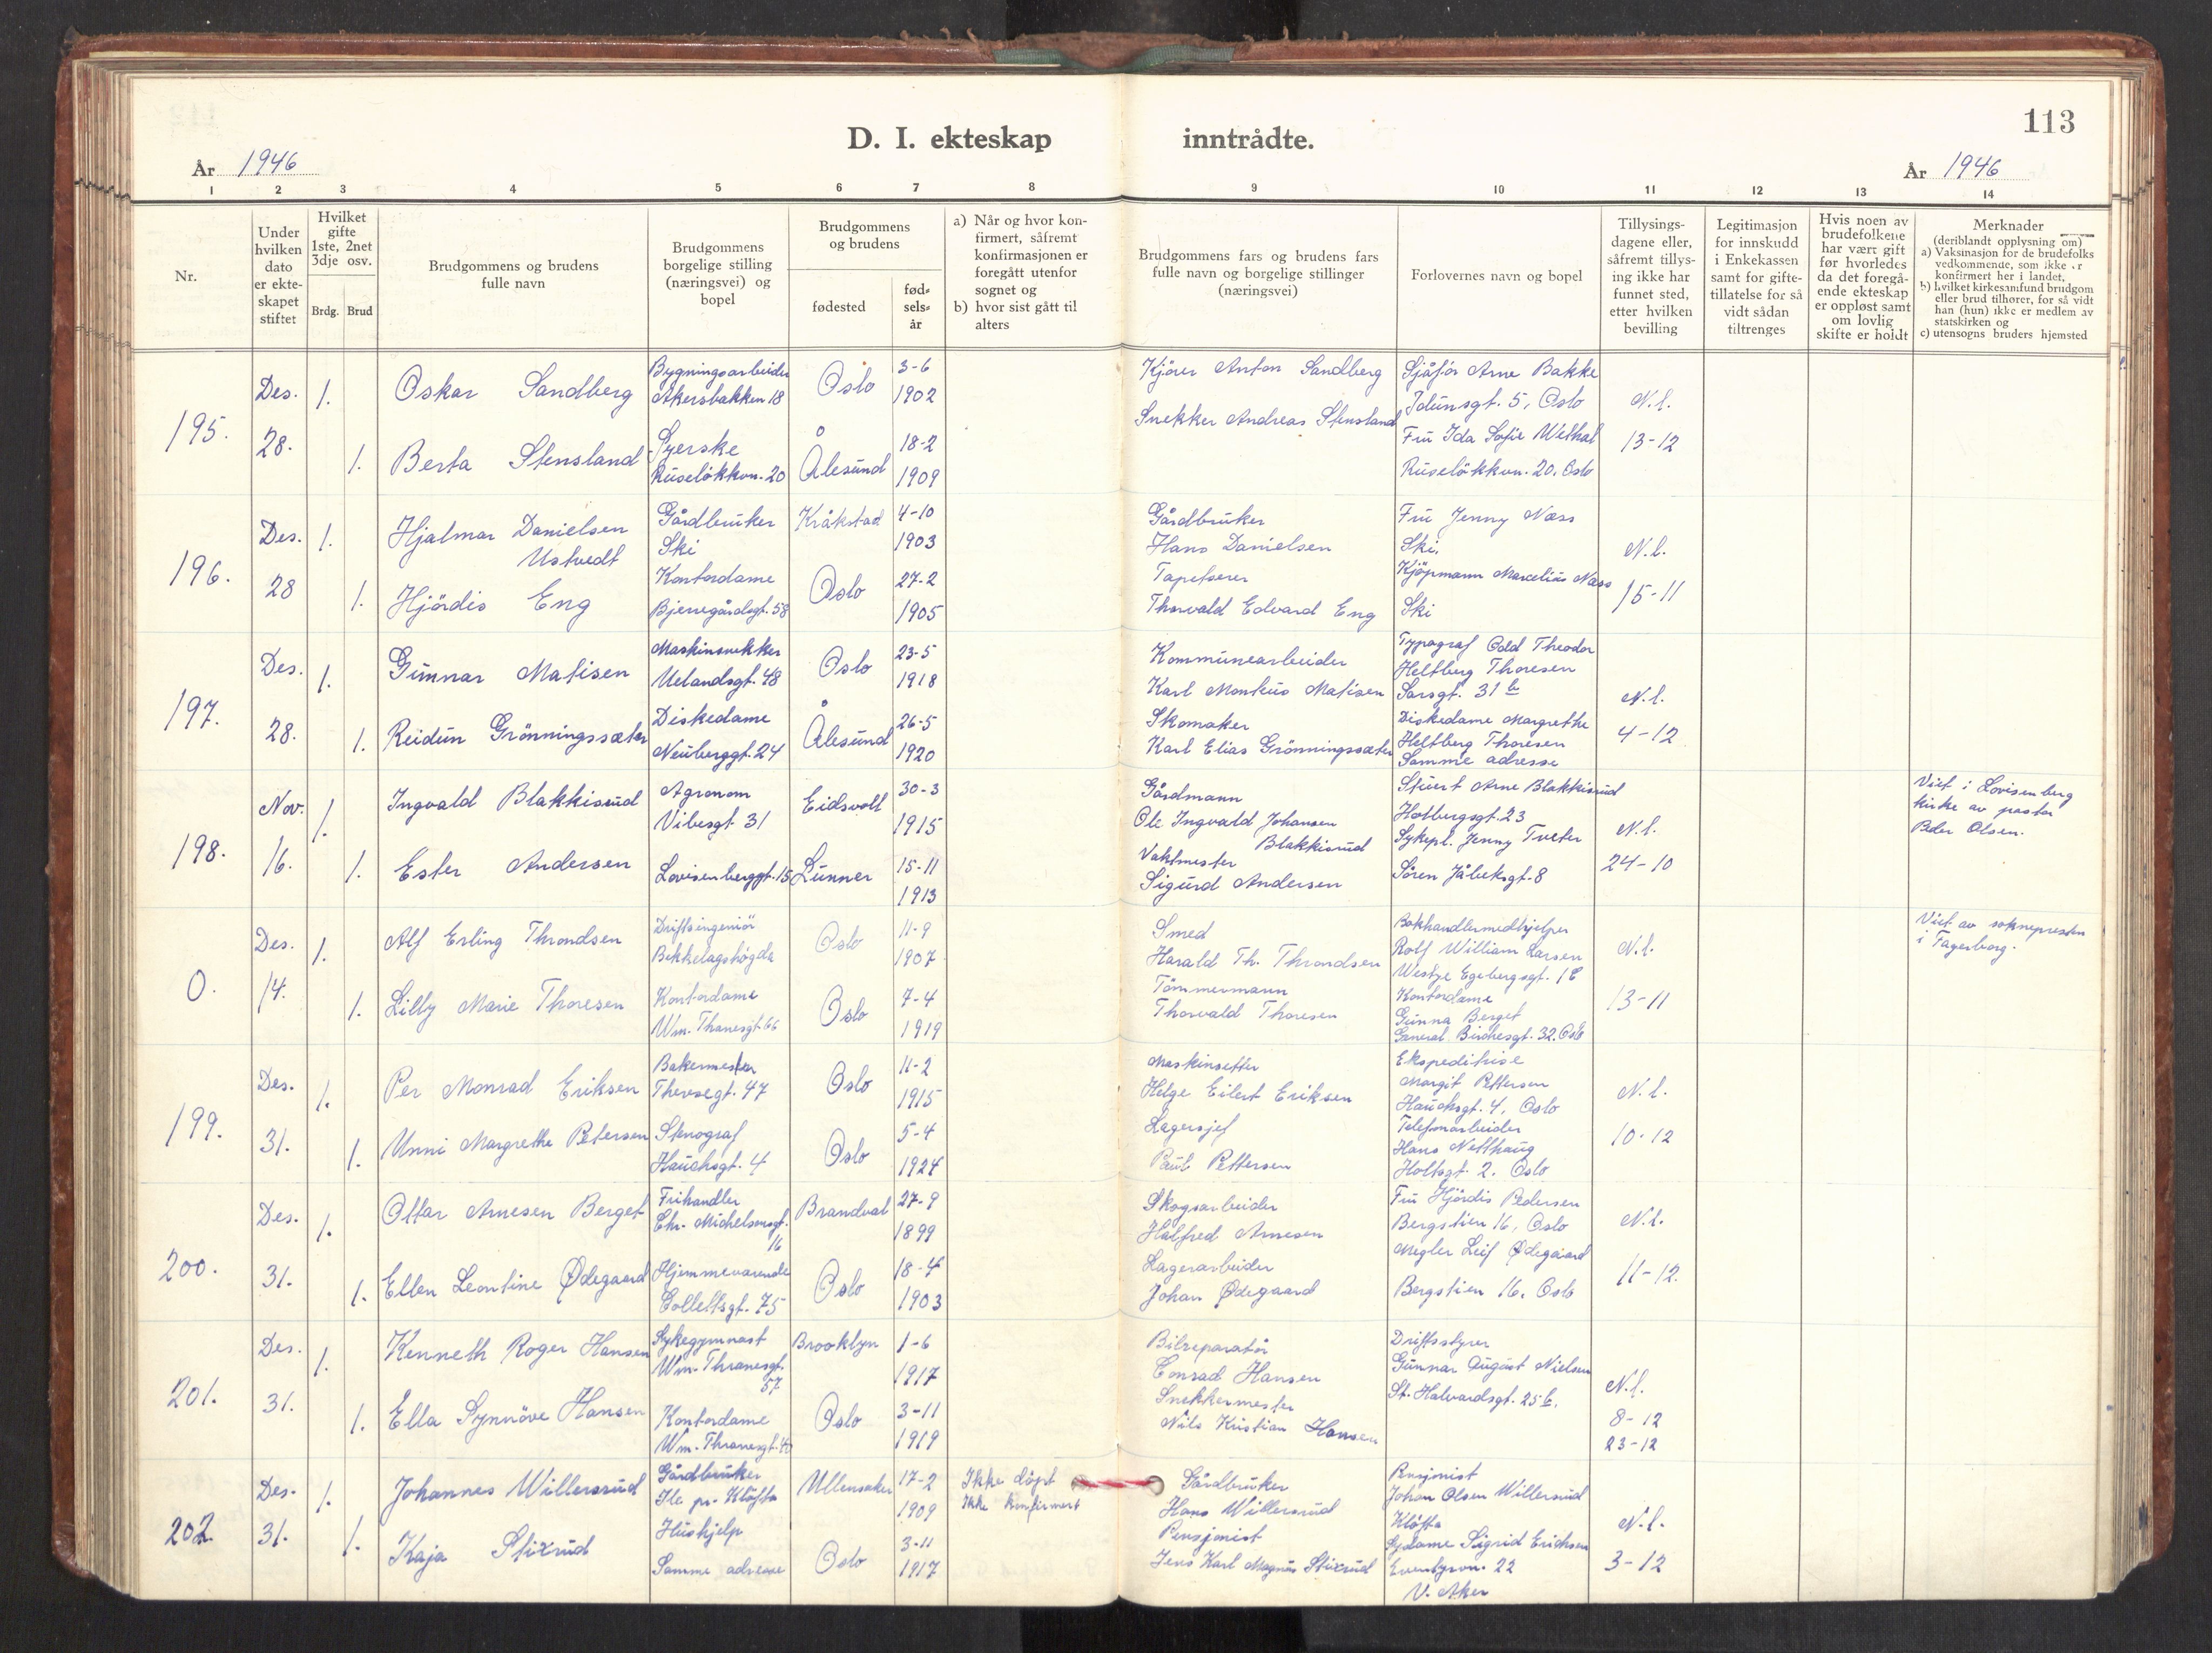 113
D. I. ekteskap inntrådte.
År 1946
År 1946
1 2 3 4 5 6 7 8 9 10 11 12 13 14
Nr.
Under
hvilken
dato
er ekte-
skapet
stiftet
Hvilket
gifte
1ste, 2net
3dje osv.
Brdg. Brud
Brudgommens og brudens
fulle navn
Brudgommens
borgelige stilling
(næringsvei) og
bopel
Brudgommens
og brudens
fødested
fød-
sels-
år
a) Når og hvor kon-
firmert, såfremt
konfirmasjonen er
foregått utenfor
sognet og
b) hvor sist gått til
alters
Brudgommens fars og brudens fars
fulle navn og borgelige stillinger
(næringsvei)
Forlovernes navn og bopel
Tillysings-
dagene eller,
såfremt tillys-
ing ikke har
funnet sted,
etter hvilken
bevilling
Legitimasjon
for innskudd
i Enkekassen
samt for gifte-
tillatelse for så
vidt sådan
tiltrenges
Hvis noen av
brudefolkene
har vært gift
før hvorledes
da det foregå-
ende ekteskap
er oppløst samt
om lovlig
skifte er holdt
Merknader
(deriblandt opplysning om)
a) Vaksinasjon for de brudefolks
vedkommende, som ikke er
konfirmert her i landet,
b) hvilket kirkesamfund brudgom
eller brud tilhører, for så vidt
han (hun) ikke er medlem av
statskirken og
c) utensogns bruders hjemsted
195.
Des.
28.
1.
1.
Oskar Sandberg
Berta Stensland
Bygningsarbeider
Akersbakken 18
Syerske
Ruseløkkvn. 20
Oslo
Ålesund
3-6
1902
18-2
1909
Kjører Anton Sandberg
Snekker Andreas Stensland
Sjåfør Arne Bakke
Idunsgt. 5, Oslo
Fru Ida Sofie Wethal
Ruseløkkvn. 20. Oslo
N.l.
13-12
196.
Des.
28
1.
1.
Hjalmar Danielsen
Ustvedt
Hjördis Eng
Gårdbruker
Ski
Kontordame
Bjerregårdsgt. 58
Kråkstad
Oslo
4-10
1903
27-2
1905
Gårdbruker
Hans Danielsen
Tapetserer
Thorvald Edvard Eng
Fru Jenny Næss
Ski.
Kjøpmann Marcelius Næss
Ski
N.l.
15-11
197.
Des.
28.
1.
1.
Gunnar Matisen
Reidun Grönningssæter
Maskinsnekker
Uelandsgt. 48
Diskedame
Neuberggt. 24
Oslo
Ålesund
23-5
1918
26-5
1920
Kommunearbeider
Karl Montius Matisen
Skomaker
Karl Elias Grönningssæter
Typograf Odd Theodor
Heltberg Thoresen
Sarsgt. 31 b
Diskedame Margrethe
Heltberg Thoresen
Samme adresse
N.l.
4-12
198.
Nov.
16.
1.
1.
Ingvald Blakkisrud
Ester Andersen
Agronom
Vibesgt. 31
Lovisenberggt. 15
Eidsvoll
Lunner
30-3
1915
15-11
1913
Gårdmann
Ole Ingvald Johansen
Blakkisrud
Vaktmester
Sigurd Andersen
Stuert Arne Blakkisrud
Holbergsgt. 23
Sykepl. Jenny Tveter
Sören Jåbeksgt. 8
N.l.
24-10
Viet i Lovisenberg
kirke av pastor
Peder Olsen.
0.
Des.
14.
1.
1.
Alf Erling Throndsen
Lilly Marie Thoresen
Driftsingeniör
Bekkelagshögda
Kontordame
Wm. Thranesgt. 66
Oslo
Oslo
11-9
1907
7-4
1919
Smed
Harald Th. Throndsen
Tømmermann
Thorvald Thoresen
Bokhandlermedhjelper
Rolf William Larsen
Westye Egebergsgt. 1 C
Kontordame
Gunna Berget
General Birchesgt. 32. Oslo
N.l.
13-11
Viet av soknepresten
i Fagerborg.
199.
Des.
31.
1.
1.
Per Monrad Eriksen
Unni Margrethe Petersen
Bakermester
Theresegt. 47
Stenograf
Hauchsgt. 4
Oslo
Oslo
11-2
1915
5-4
1924
Maskinsetter
Helge Eilert Eriksen
Lagersjef
Paul Pettersen
Ekspeditrise
Margit Pettersen
Hauchsgt. 4, Oslo
Telefonarbeider
Hans Netthaug
Holtsgt. 2. Oslo
N.l.
10-12
200.
Des.
31.
1.
1.
Ottar Arnesen Berget
Ellen Leontine Ødegaard
Frihandler
Chr. Michelsensgt.
16
Hjemmeværende
Collettsgt. 75
Brandval
Oslo
27-9
1899
18-4
1903
Skogsarbeider
Halfred Arnesen
Lagerarbeider
Johan Ødegaard
Fru Hjördis Pedersen
Bergstien 16, Oslo
Megler Leif Ødegaard
Bergstien 16, Oslo
N.l.
11-12.
201.
Des.
31.
1.
1.
Kenneth Roger Hansen
Ella Synnöve Hansen
Sykegymnast
Wm. Thranesgt.
57
Kontordame
Wm. Thranesgt.
Brooklyn
Oslo
1-6
1917
3-11
1919
Bilreparatör
Conrad Hansen
Snekkermester
Nils Kristian Hansen
Driftsstyrer
Gunnar August Nielsen
St. Halvardsgt. 25 b.
N.l.
8-12
23-12
202.
Des.
31.
1.
1.
Johannes Willersrud
Kaja Stixrud
Gårdbruker
pr. Kløfta
Hushjelp
Samme adresse
Ullensaker
Oslo
17-2
1909
3-11
1917
Ikke döpt
Ikke konfirmert
Gårdbruker
Hans Willersrud
Pensjonist
Jens Karl Magnus Stixrud
Pensjonist
Johan Olsen Willersrud
Kløfta
Sydame Sigrid Erichsen
Eventyrvn. 22
V. Aker
N.l.
3-12